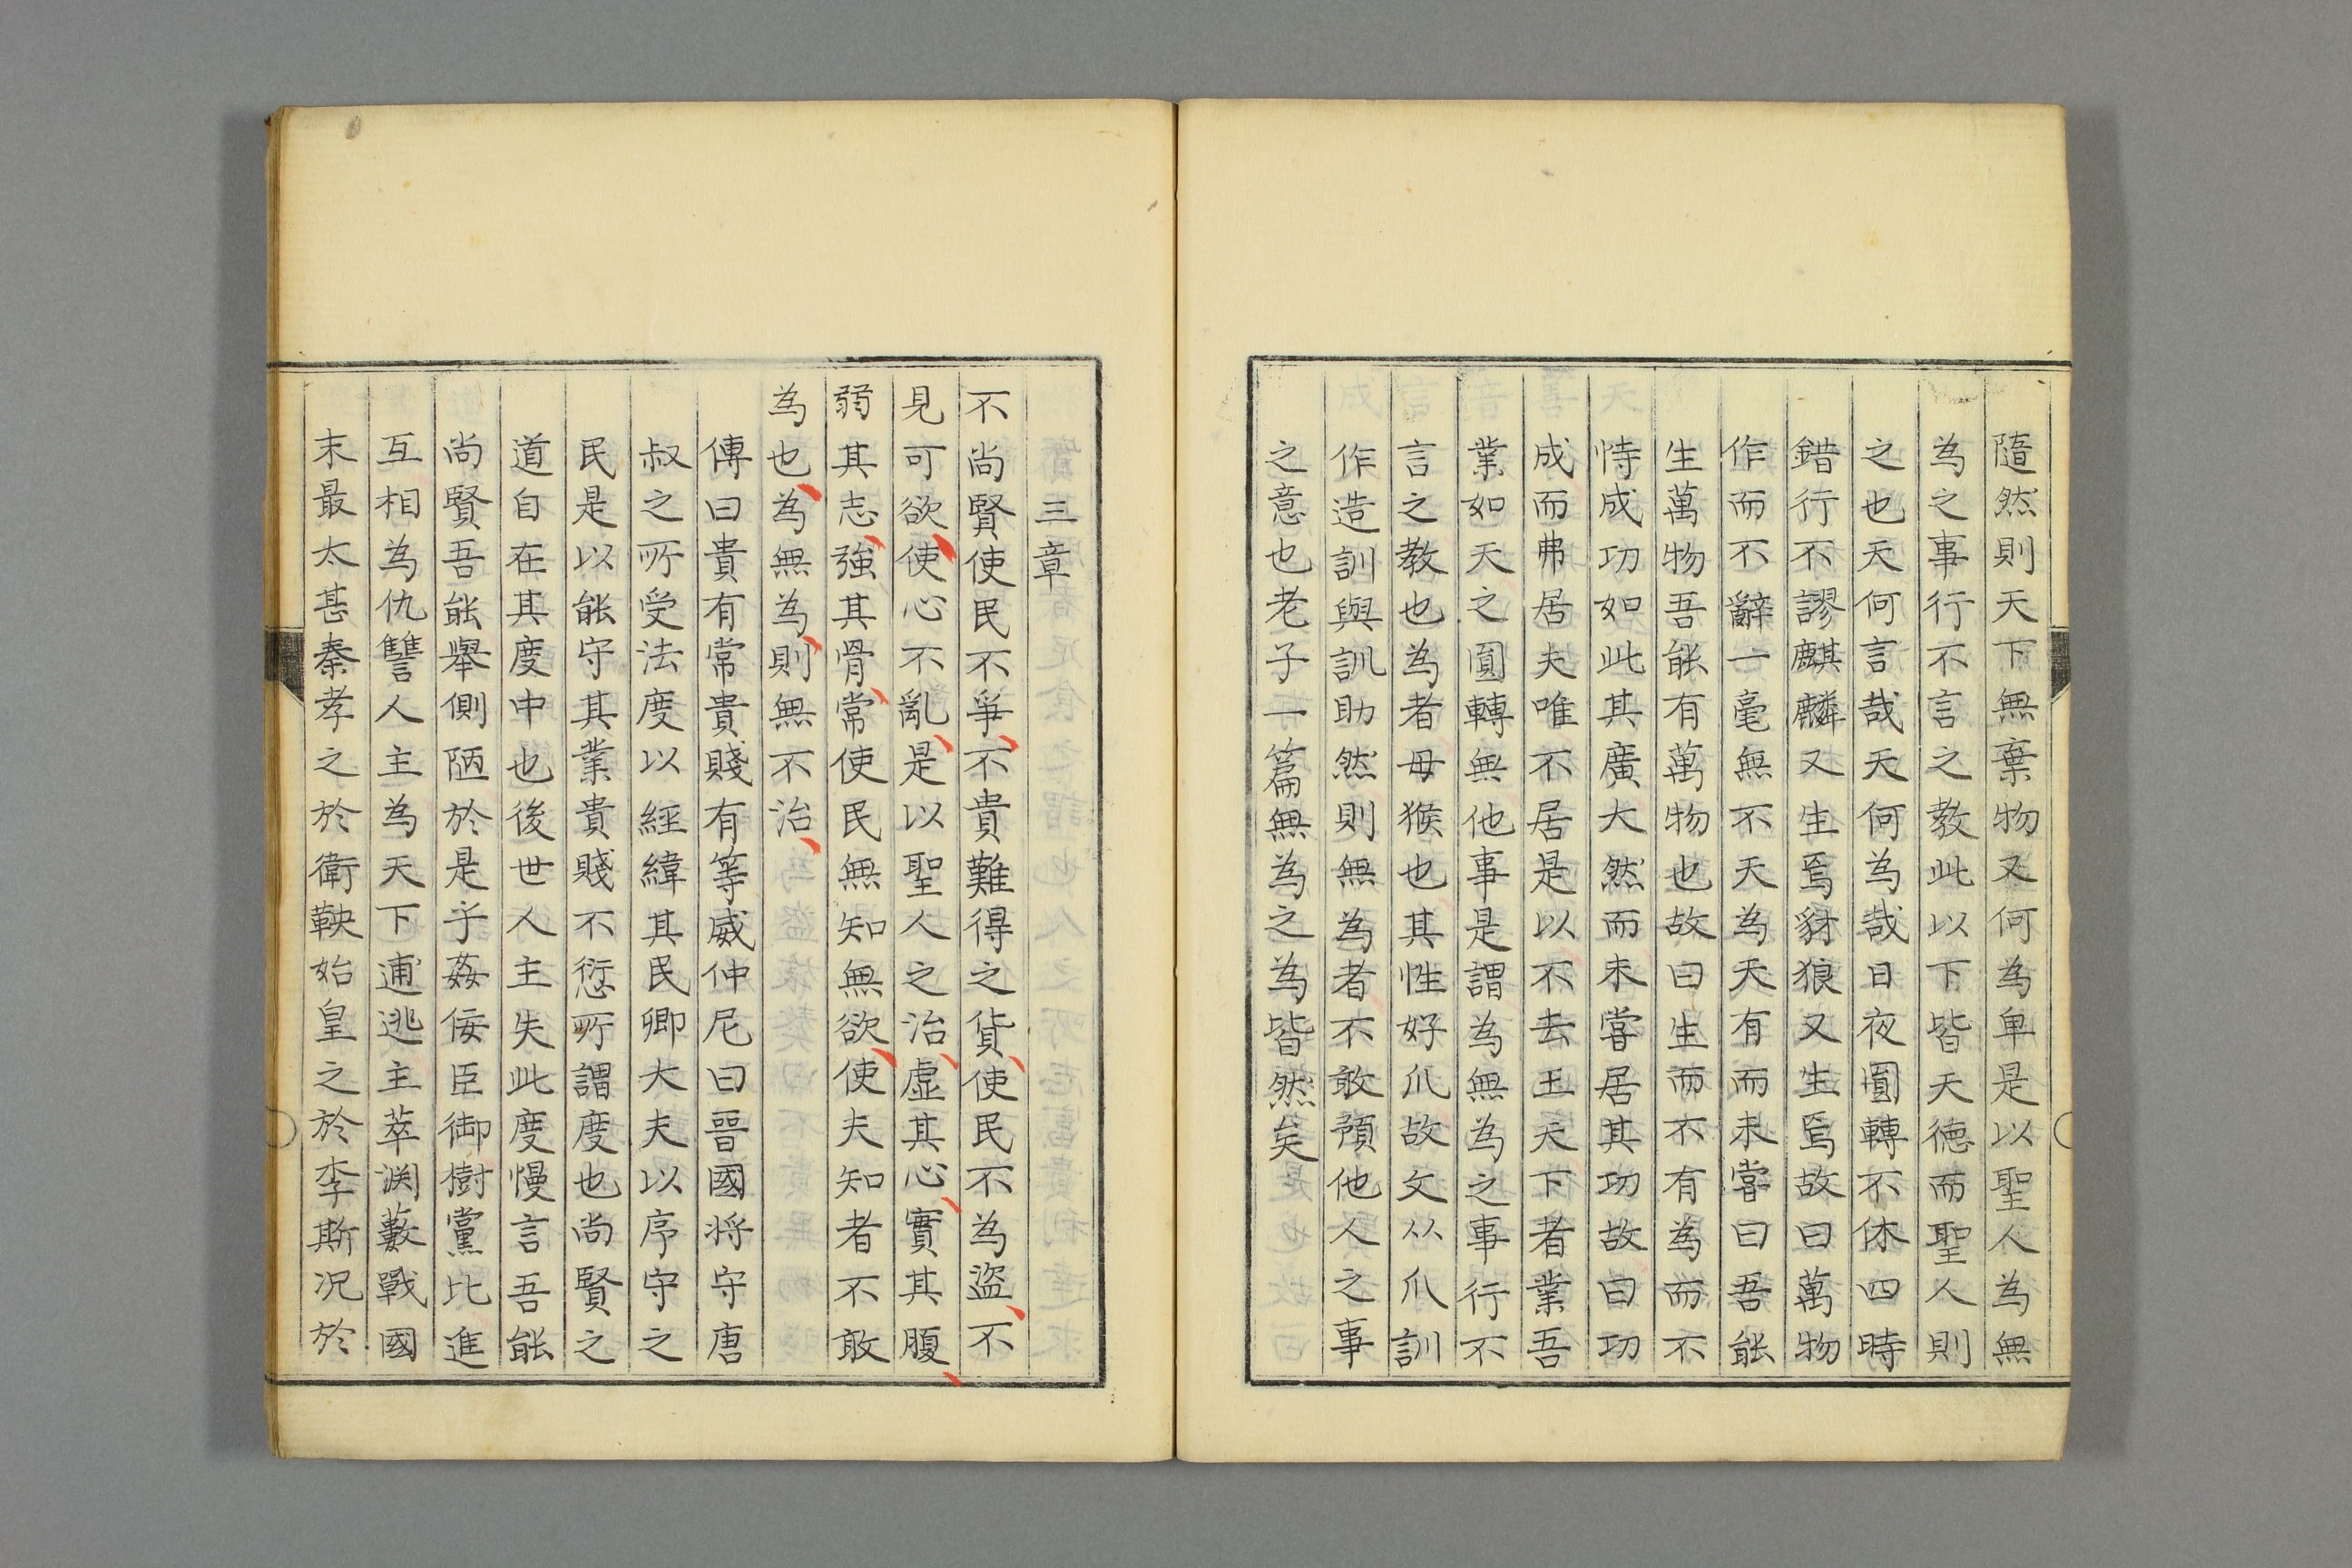 隨然則天下無棄物又何為卑是以聖人為無
為之事行不言之教此以下皆天德而聖人則
之也天何言哉天何為哉日夜圓轉不休四時
錯行不謬麒麟又生焉豺狼又生焉故曰萬物
作而不辭一毫無不天天為天有而未嘗曰吾能
生萬物吾能有萬物也故曰生而不有為而不
恃成功如此其廣大然而未嘗居其功故曰功
成而弗居夫唯不居是以不去王天下者業吾
業如天之圓轉無他事是謂為無為之事行不
言之教也為者母猴也其性好爪故文从爪訓
作造訓與訓助然則無為者不敢預他人之事
之意也老子一篇無為之為皆然矣
三章
不尚賢使民不爭不貴難得之貨使民不為盜不
見可欲使心不亂是以聖人之治虛其心實其腹
弱其志強其骨常使民無知無欲使夫知者不敢
為也為無為則無不治
傳曰貴有常貴賤有等威仲尼曰晉國將守唐
叔之所受法度以經緯其民卿大夫以序守之
民是以能守其業貴賤不愆所謂度也尚賢之
道自在其度中也後世人主失此度慢言吾能
尚賢吾能舉側陋於是乎姦佞臣御樹黨比進
互相為仇讐人主為天下逋逃主萃淵藪戰國
末最太甚秦孝之於衛鞅始皇之於李斯况於